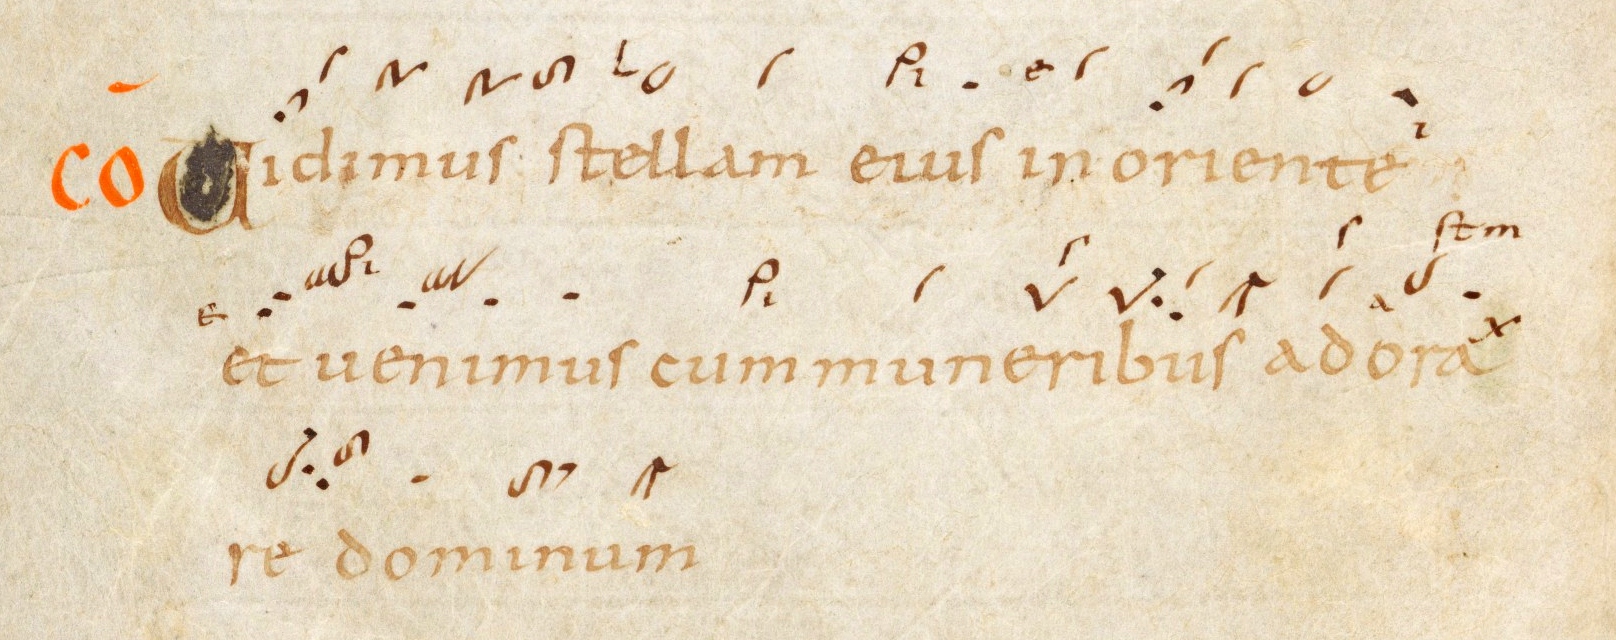 CŌ Uidimus stellam eius in oriente
et uenimus cum muneribus adora
re dominum